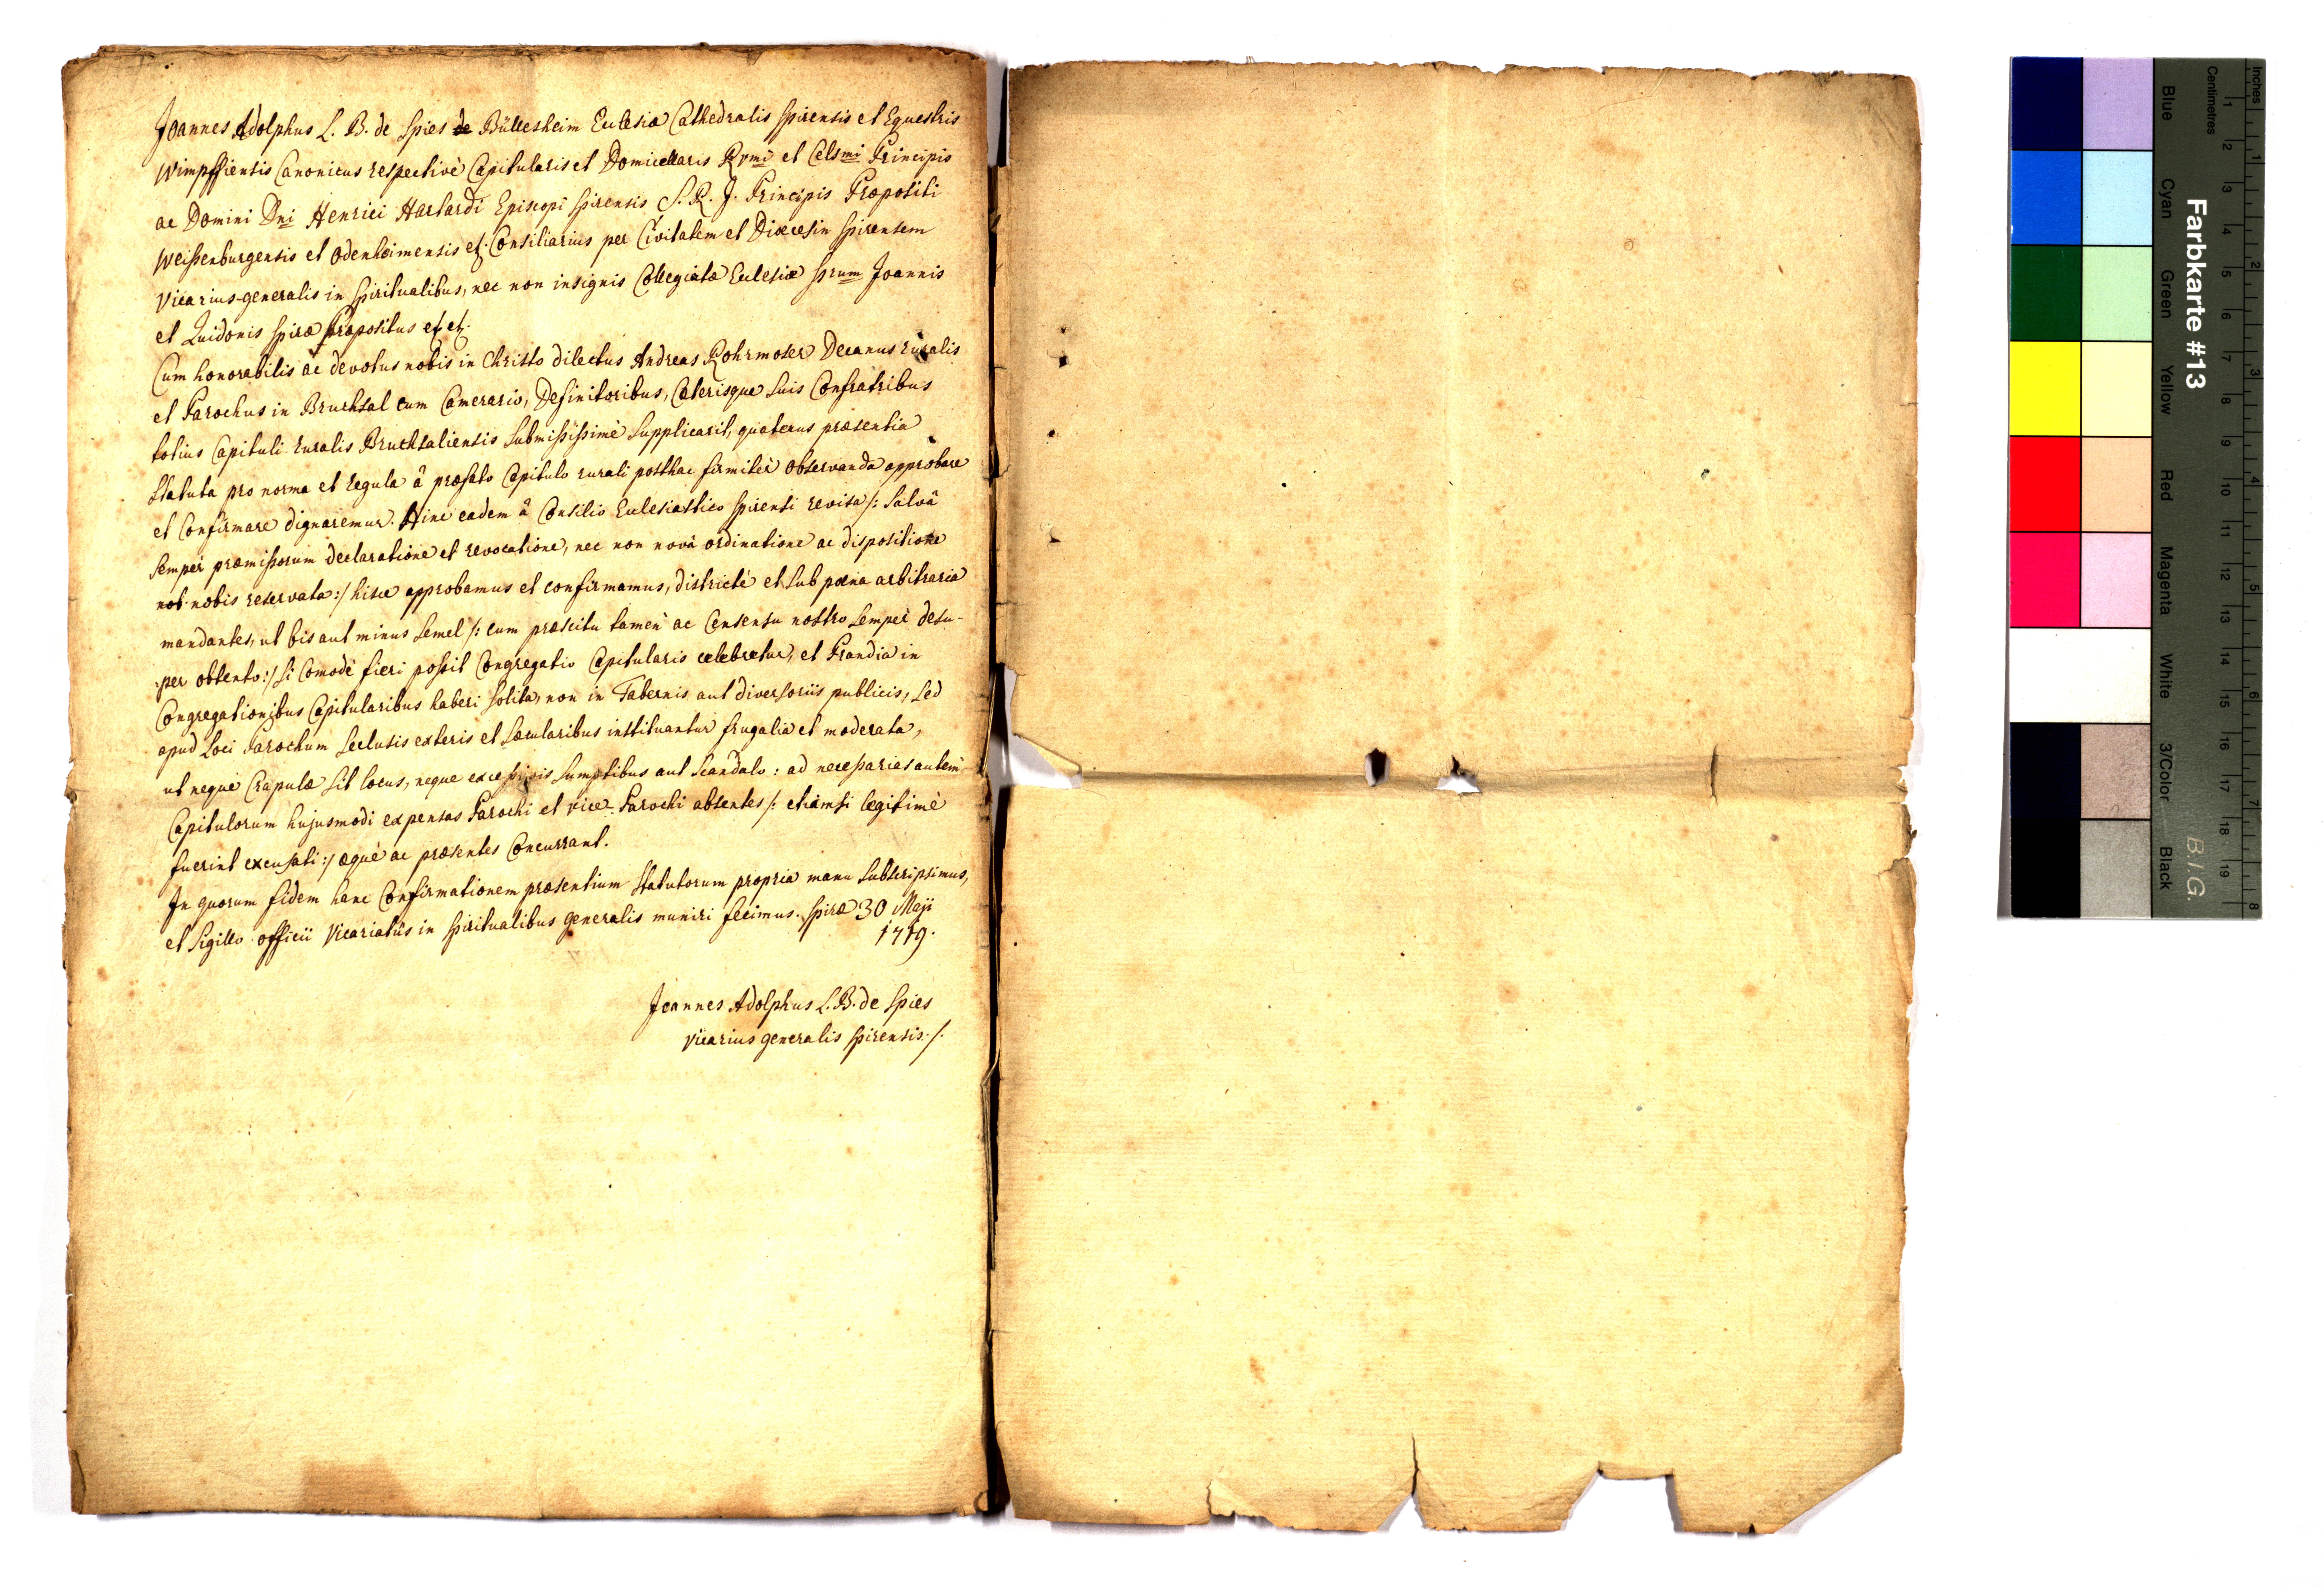 Joannes Adolphus L. B. de Spies de Büllesheim Eccleſiæ Cathedralis Spirensis et Equestris
Wimpffiensis Canonicus respectivè Capitularis et Domicellaris Rvmi et Celsmi Principis
ac Domini Dni Henrici Hartardi Episcopi Spirensis S. R. J. Principis Præpositi
Weißenburgensis et Odenheimensis etc. Consiliarius per Civitatem et Diœcesin Spirensem
Vicarius-generalis in Spiritualibus, nec non insignis Collegiatæ Ecclesiæ SSrum Joannis
et Quidonis Spiræ Præpositus etc etc.
Cum honorabilis ac devotus nobis in Christo dilectus Andreas Rohrmoser Decanus ruralis
et Parochus in Bruchsal cum Camerario, Definitoribus, Cæterisque suis Confratribus
totius Capituli ruralis Bruchsaliensis submißißimè supplicarit, quatenus præsentia
Statuta pro norma et regula â præfato Capitulo rurali posthac firmitèr observanda approbare
et Confirmare dignaremur. Hinc eadem â Consilio Ecclesiastico Spirensi revisa /: salvâ
semper præmißorum declaratione et revocatione, nec non novâ ordinatione ac dispositione
nobis reservata :/ hisce approbamus et confirmamus, districtè et sub pœna arbitraria
mandantes, ut bis aut minus semel /: cum præscitu tamèn ac Consensu nostro sempèr desu-
per obtento :/ si Comodè fieri poßit Congregatio Capitularis celebretur, et Prandia in
Congregationibus Capitularibus haberi solita, non in Tabernis aut diversoriis publicis, sed
apud Loci Parochum seclusis exteris et sæcularibus instituantur frugalia et moderata,
ut neque Crapulæ sit locus, neque exceßivis sumptibus aut scandalo : ad neceßarias autem
Capitulorum hujusmodi expensas Parochi et vice-Parochi absentes /: etiamsi legitimè
fuerint excusati :/ æquè ac præsentes Concurrant.
In quorum fidem hanc Confirmationem præsentium Statutorum propria manu subscripsimus,
et Sigillo officii Vicariatûs in Spiritualibus generalis muniri fecimus. Spiræ 30 Maji
1719.
Joannes Adolphus L. B. de Spies
Vicarius generalis Spirensis. /.
Farbkarte #13
B.I.G.
Inches 1 2 3 4 5 6 7 8
Centimetres 1 2 3 4 5 6 7 8 9 10 11 12 13 14 15 16 17 18 19
Blue Cyan Green Yellow Red Magenta White 3/Color Black